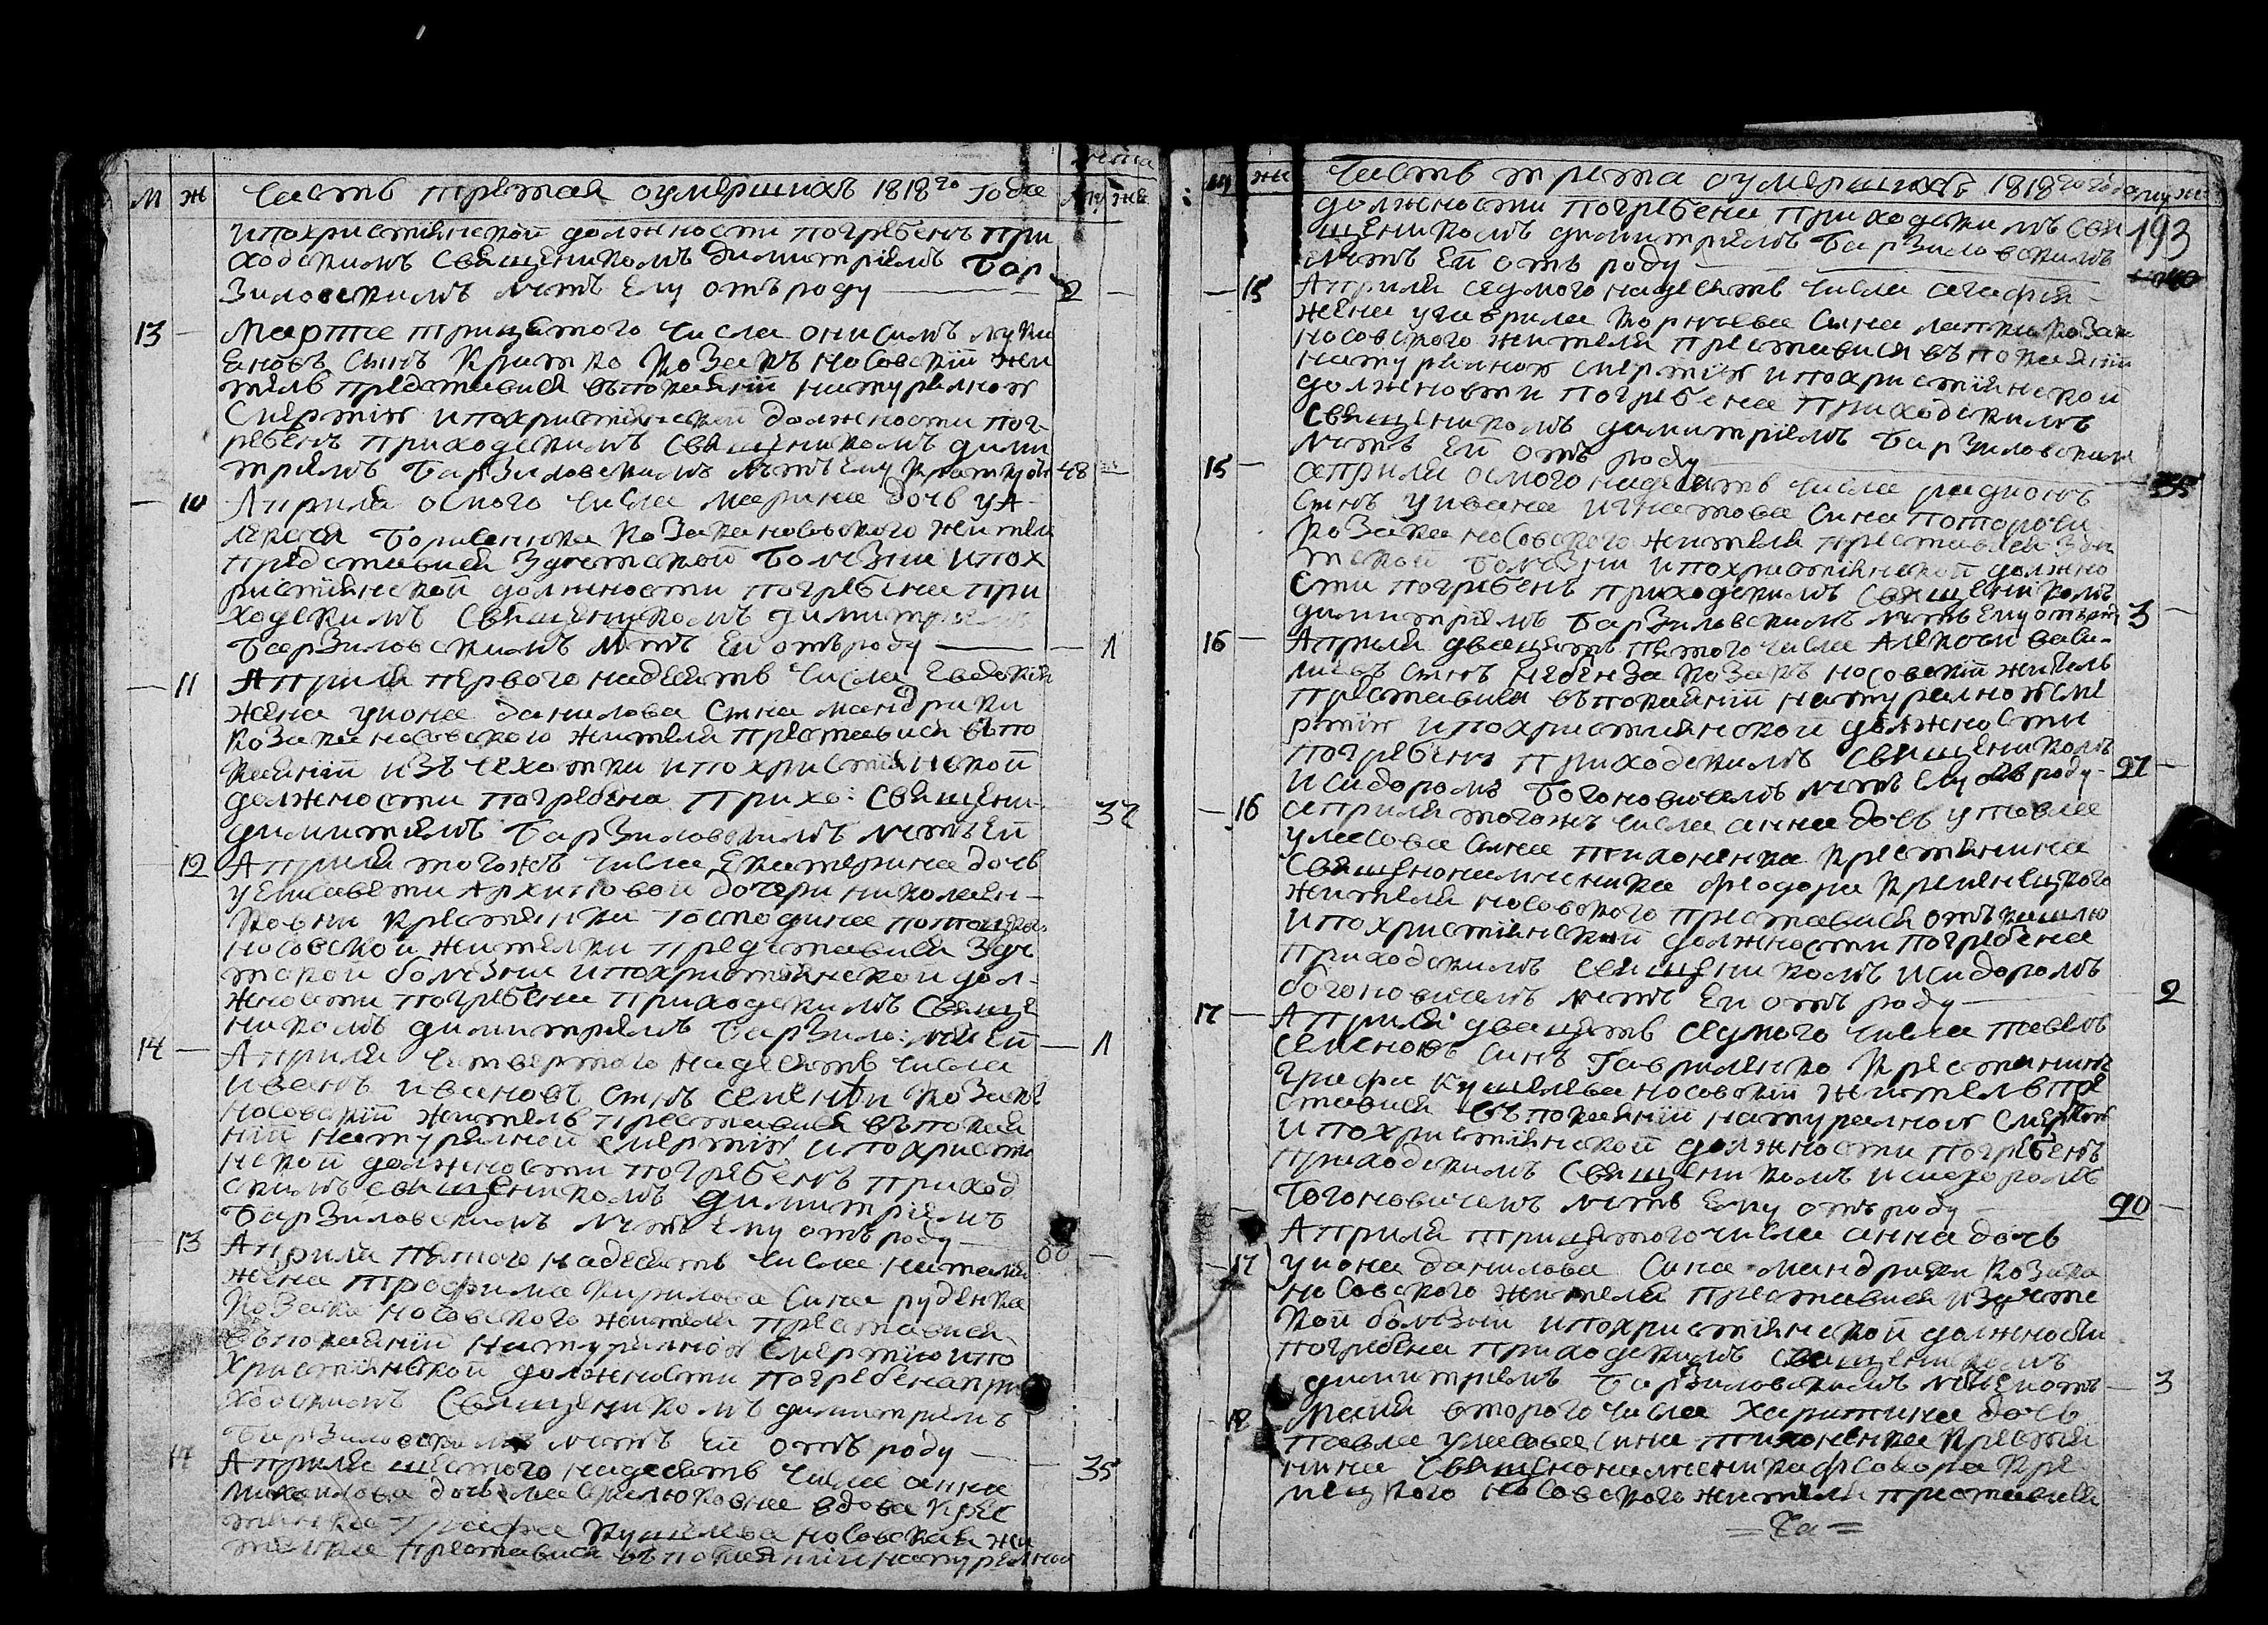 лета
М Ж Часть третая оумершихъ 1818го года му же
ипохристіянской должности погребенъ при
ходскимъ священикомъ димитріемъ Бар
зиловскимъ летъ ему отъ роду 2
13 Марта трицатого числа онисимъ луки
еновъ сынъ козакъ носовскій жи
тель представися въпокаяніи натуралною
смертію ипохристіянской должности пог
ребенъ приходскимъ священикомъ дими
тріемъ Барзиловскимъ летъ ему 48
10 Априля осмого числа марина дочь у А
лексея козака носовского жителя
представися здетской болезни ипох
ристіянской должности погребена при
ходскимъ священикомъ димитріемъ
Барзиловскимъ летъ ей отъроду 1
11 Априля первого надесять числа Евдокія
жена уиона данилова сына мандрики
козака носовского жителя преставися въпо
каяніи изъ чехотки ипохристіянской
должности погребена прихо: священи
димитріемъ Барзиловскимъ летъ ей 32
12 Априля тогожъ числа Екатерина дочь
уелисавети Архиповой дочери николаен
ковни крестянки господина
носовской жителки представися здет
ской болезни ипохристіянской дол
жности погребена приходскимъ свяще
никомъ димитріемъ Барзило: ле: ей 1
14 Априля четвертого надесять числа
иванъ ивановъ сынъ козакъ
носовскій житель преставися въпокая
ніи натуралной смертію ипохристія
нской должности погребенъ приход
скимъ священикомъ димитріемъ
Барзиловскимъ летъ ему отъ роду
13 Априля пятого надесять числа наталия
жена трофима кирилова сина руденка
козака носовского жителя преставися
въпокаяніи натуралною смертію ипо
христіянской должности погребена при
ходскимъ священикомъ димитріемъ
Барзиловскимъ летъ ей отъ роду 35
14 Априля шестого надесять числа анна
дочь вдова крес
тянка графа кушелева носовская жи
телка преставися въпокаяніи натуралной
му жи Часть трета оумершихъ 1818го года му же
должности погребена приходскимъ свя 193
щеникомъ димитріемъ Барзиловскимъ
летъ ей отъ роду
15 Априля седмого надесять числа агафія
жена угаврила корнеева сына козака
носовского жителя преставися въпокаяніи
натуралною смертію ипохристіянской
должности погребена приходскимъ
священикомъ димитріемъ Барзиловским
летъ ей отъ роду 35
15 априля осмого надесять числа родионъ
сынъ уивана игнатова сина
козака носовского жителя преставися здет
ской болезни ипохристіянской должно
сти погребенъ приходскимъ священікомъ
димитріемъ Барзиловскимъ летъ ему отърод 3
16 Априля двадцять пятого числа Алексей васи
лиевъ сынъ козакъ носовскій житель
преставися въпокаяніи натуралною сме
ртію ипохристіянской должности
погребенъ приходскимъ священикомъ
исидоромъ Богоновичемъ летъ ему отъ роду 97
16 априля тогожъ числа анна дочь упавла
уласова сина тихоненка крестянина
священоналченика феодора кременецкого
жителя носовского преставися откашлю
ипохристіянской должности погребена
приходскимъ священикомъ исидоромъ
богоновичемъ летъ ей отъ роду 2
17 Априля двацять седмого числа павелъ
семеновъ синъ Гавриленко крестянинъ
графа кушелева носовскій житель пре
ставися въпокаяніи натуралною смертію
ипохристіянской должности погребенъ
приходскимъ священикомъ исидоромъ
Богоновичемъ летъ ему отъ роду 90
Априля трицятого числа анна дочь
17 уиона данилова сина мандрики козака
носовского жителя преставися издетс
кой болезни ипохристіянской должности
погребена приходскимъ священикомъ
димитріемъ Барзиловскимъ летъ ей отъ 3
18 Маія второго числа харитина дочь
павла уласова сина тихоненка крестя
нина феодора кре
мецкого носовского жителя преставися